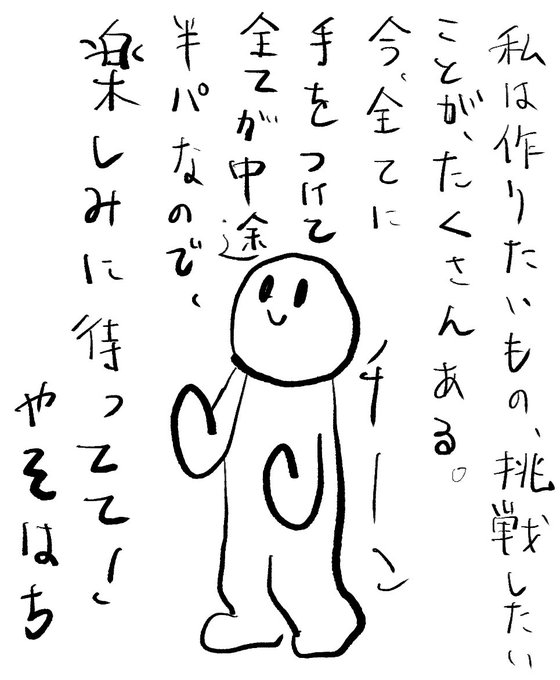 私は作りたいもの、挑戦したい
ことが、たくさんある。
今、全てに
手をつけて
全てが中途
半パなので、
楽しみに待ってて！
やそはち
チーン